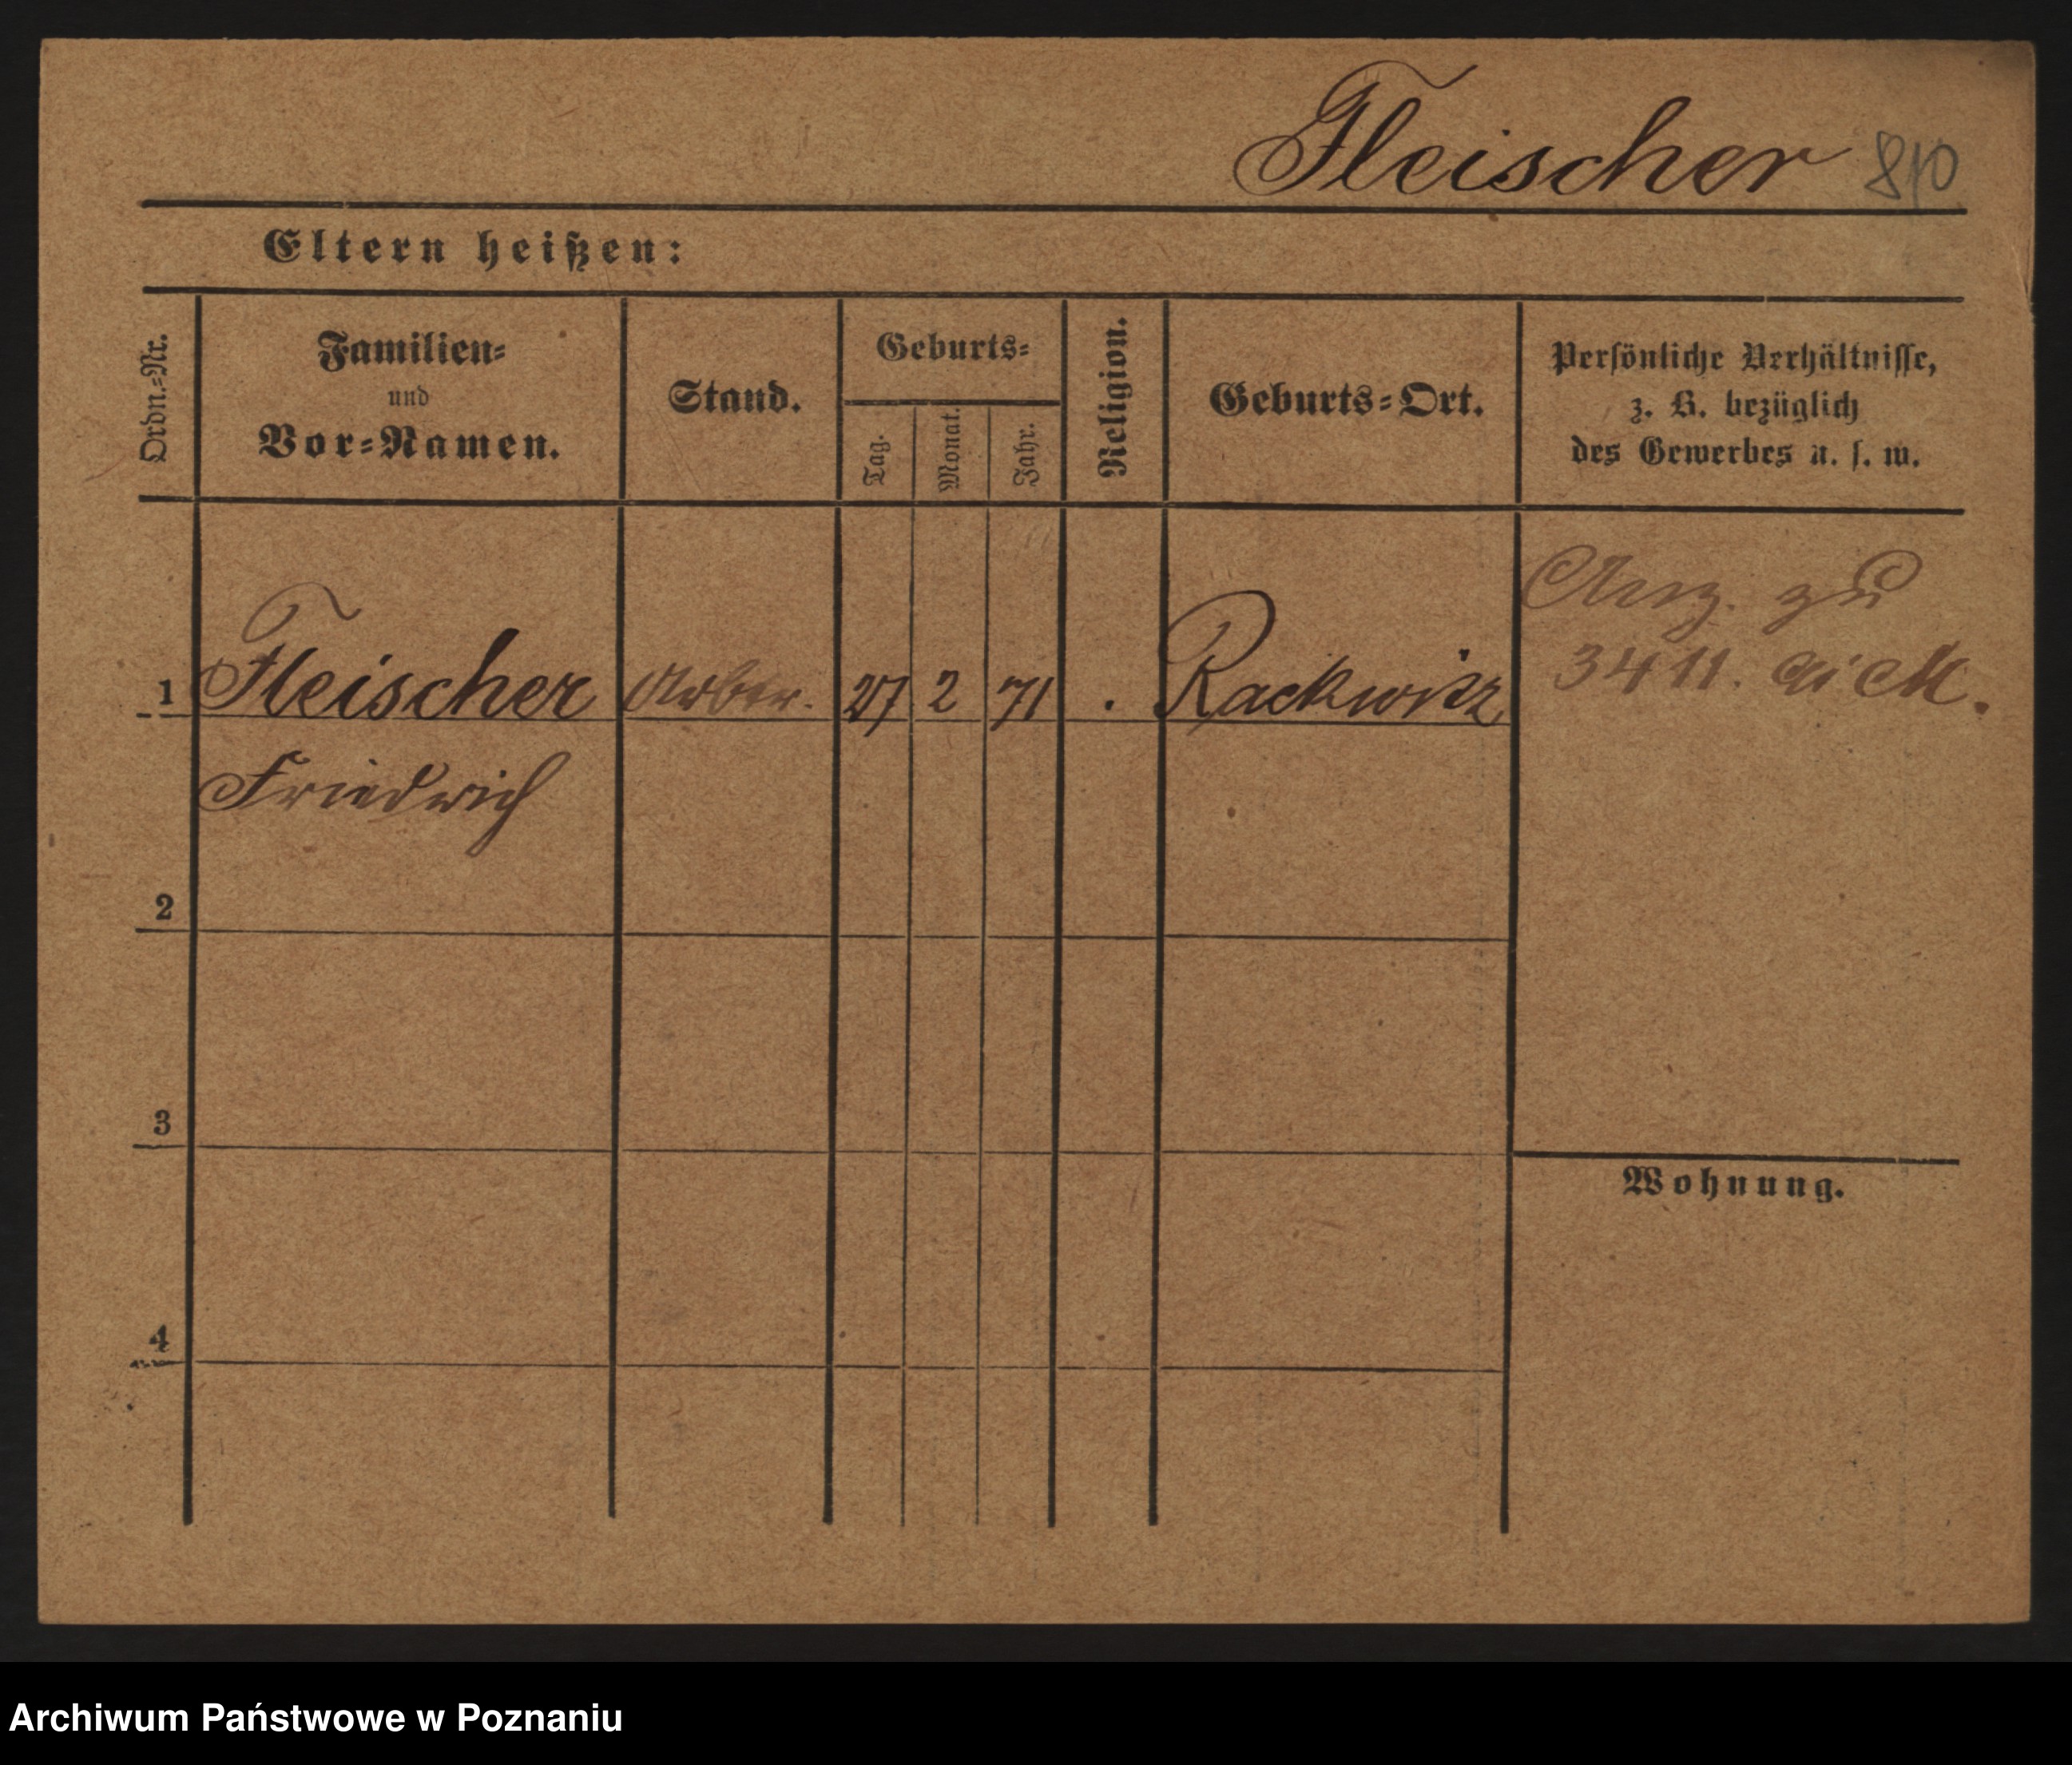 Fleischer 810
Eltern heißen:
Ordn.-Nr.
Familien-
und
Vor-Namen.
Stand.
Geburts-
Tag.
Monat.
Jahr.
Religion.
Geburts-Ort.
Persönliche Verhältnisse,
z. B. bezüglich
des Gewerbes u. s. w.
1 Fleischer Arbtr. 27 2 71 . Rackwitz
Friedrich
Anz. zu
3411.
2
3
4
Wohnung.
Archiwum Państwowe w Poznaniu